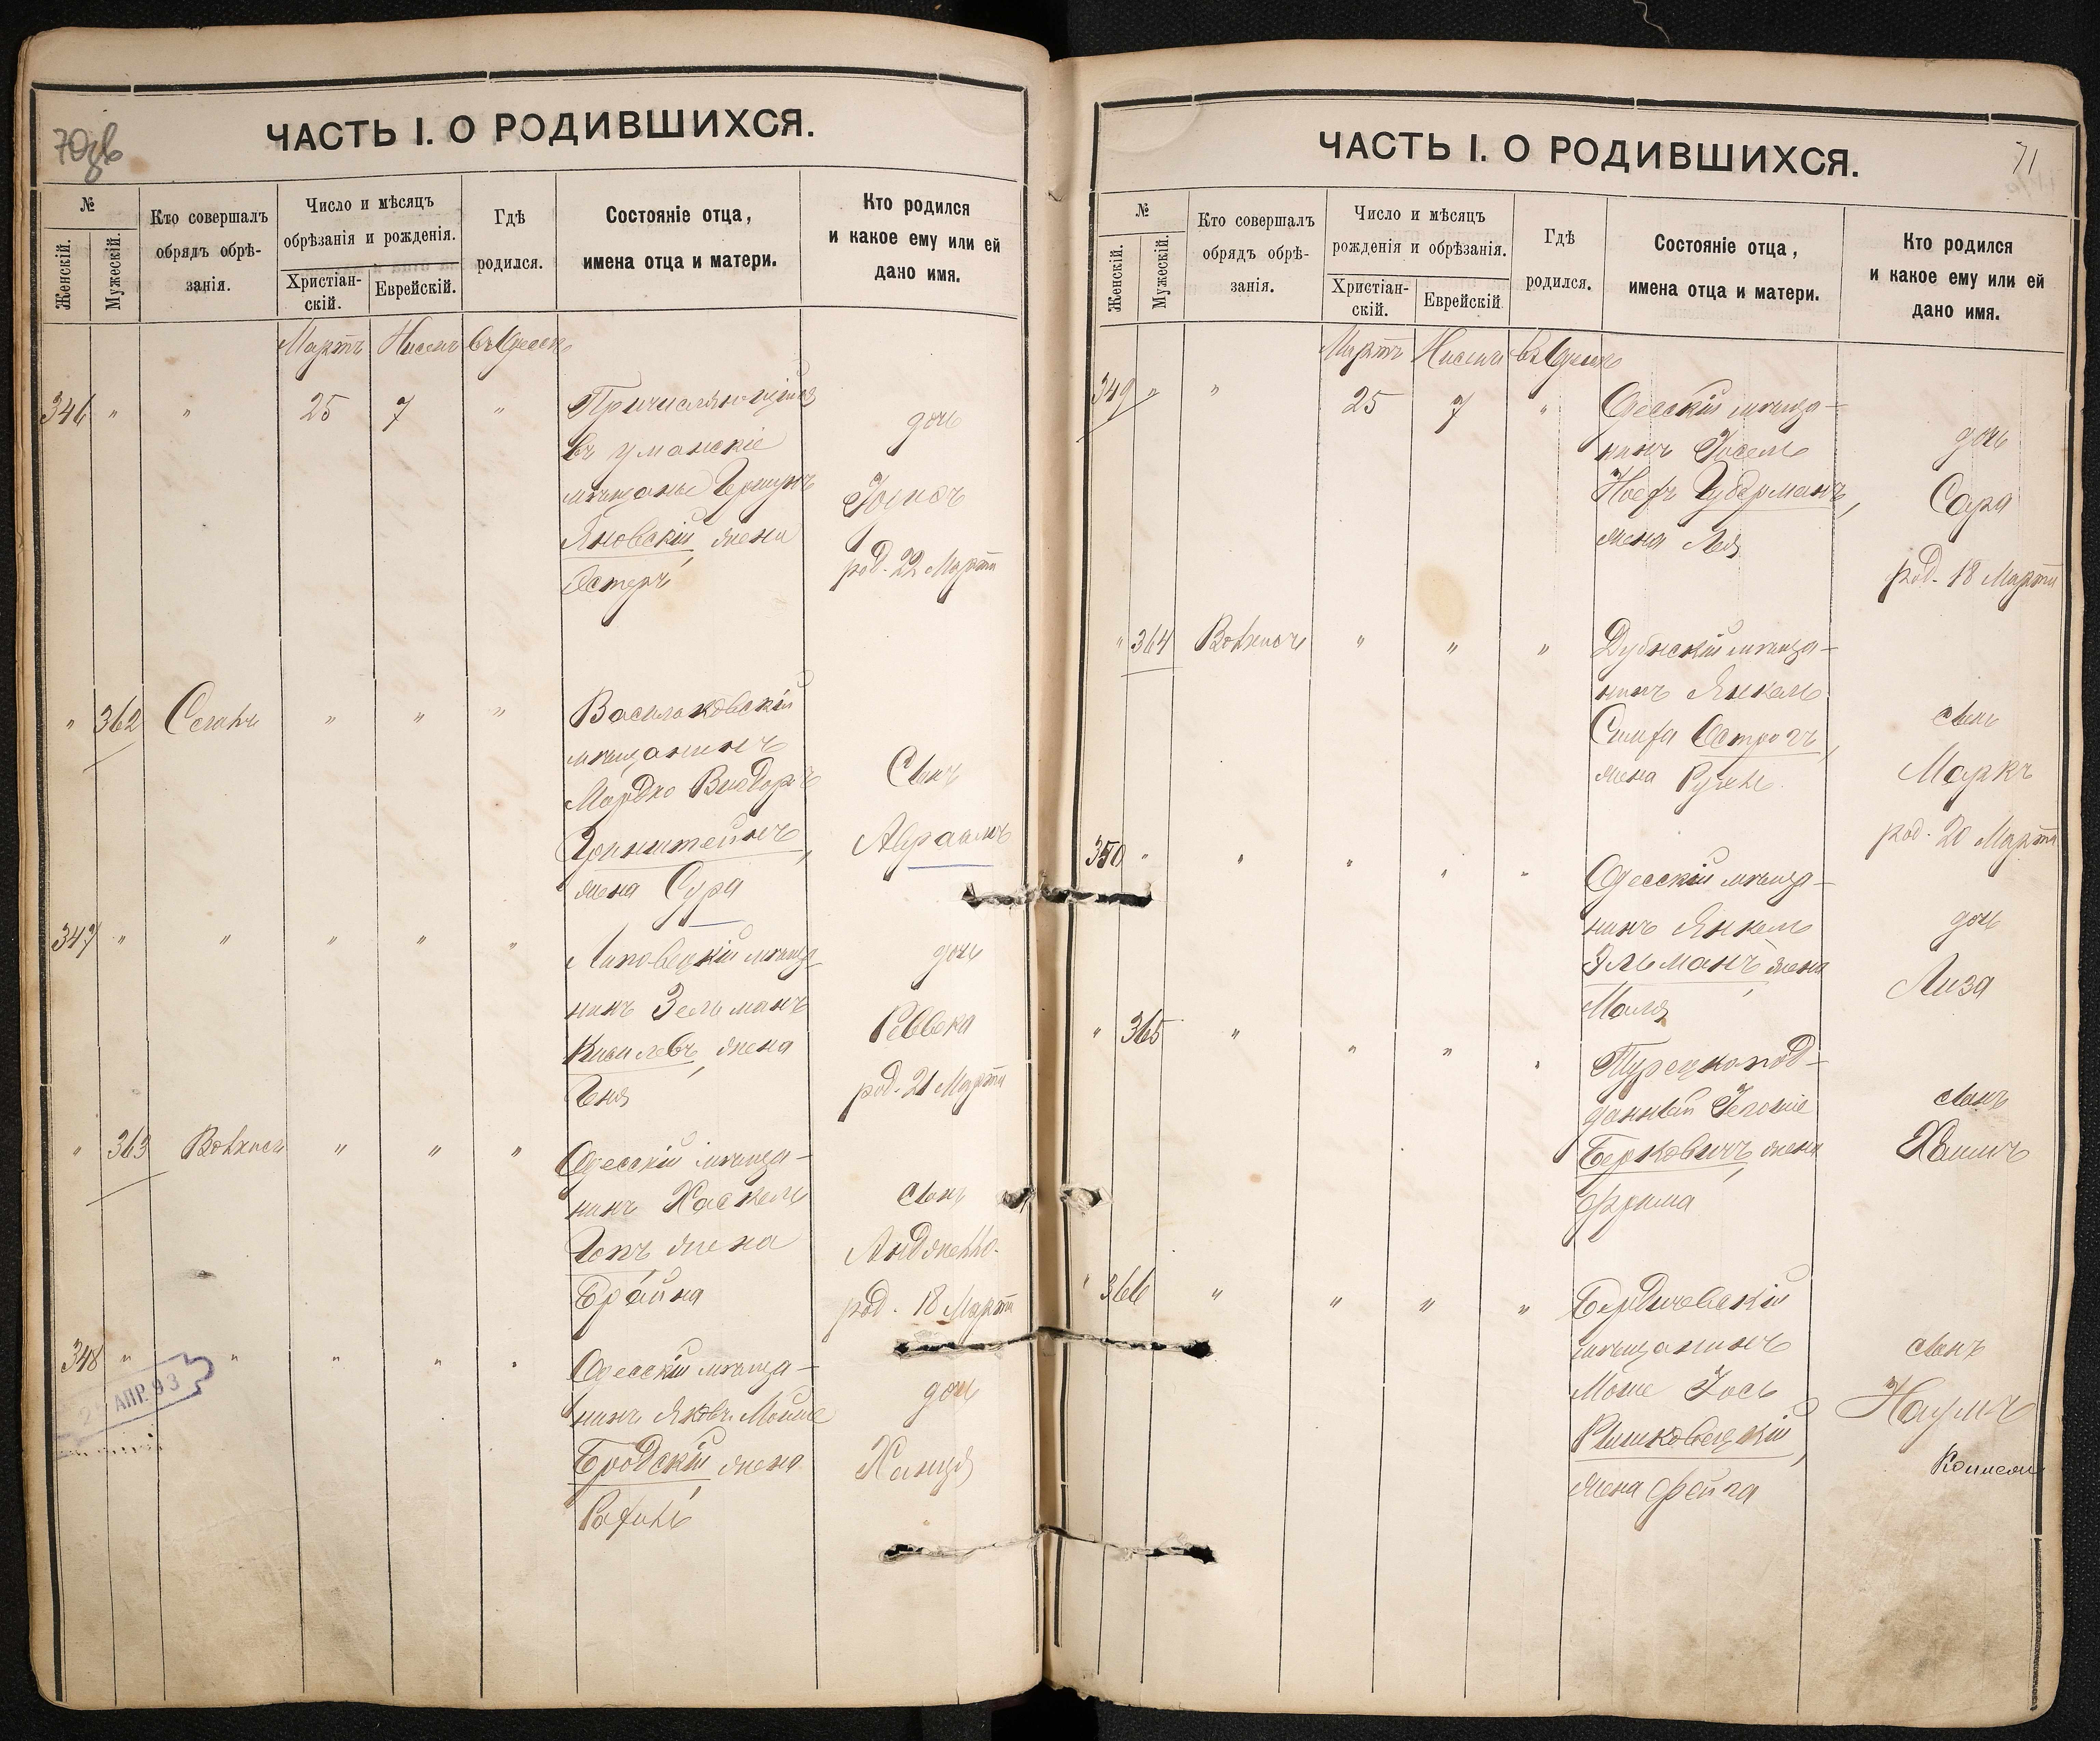 70об
ЧАСТЬ I. О РОДИВШИХСЯ.
№
Женскій.
Мужескій.
Кто совершалъ
обрядъ обрѣ-
занія.
Число и мѣсяцъ
обрѣзанія и рожденія.
Христіан-
скій.
Еврейскій.
Гдѣ
родился.
Состояніе отца,
имена отца и матери.
Кто родился
и какое ему или ей
дано имя.
Мартъ Нисенъ въ Одессѣ
346 " " 25 7 " Причисляющійся
въ уманскіе
мѣщане Гершунъ
Яновскій, жена
Эстеръ
дочь
род. 22 Марта
" 362 " " " Васильковскій
мѣщанинъ
Мордко Виgдоръ
Гринштейнъ,
жена Сура
Сынъ
Авраамъ
347 " " " " " Липовецкій мѣща-
нинъ Зельманъ
Киселевъ, жена
Еня
дочь
Ревека
род. 21 Марта
" 363 " " " Одесскій мѣща-
нинъ Хаскель
Гопъ, жена
Брайна
сынъ
род. 18 Марта
348 " " " " " Одесскій мѣща-
нинъ Яковъ Мойше
Бродскій, жена
дочь
Ханця
АПР. 93
71
ЧАСТЬ I. О РОДИВШИХСЯ.
№
Женскій.
Мужескій.
Кто совершалъ
обрядъ обрѣ-
занія.
Число и мѣсяцъ
рожденія и обрѣзанія.
Христіан-
скій.
Еврейскій
Гдѣ
родился.
Состояніе отца,
имена отца и матери.
Кто родился
и какое ему или ей
дано имя.
Мартъ Нисенъ въ Одессѣ
349 " " 25 7 " Одесскій мѣща-
нинъ Іосель
Іосефъ Губерманъ,
жена Лея
дочь
Сара
род. 18 Марта
" 364 " " " Дубнскій мѣща-
нинъ Янкель
Острогъ,
жена Рухль
сынъ
Маркъ
род. 20 Марта
350 " " " " " Одесскій мѣща-
нинъ Янкель
Эльманъ, жена
Маля
дочь
Лиза
" 365 " " " " Турецкопод-
данный
Берковичъ, жена
Фрима
сынъ
Хаимъ
" 366 " " " " Бердичевскій
мѣщанинъ
Моше Іось
Рашковецкій,
жена Фейга
сынъ
Наумъ